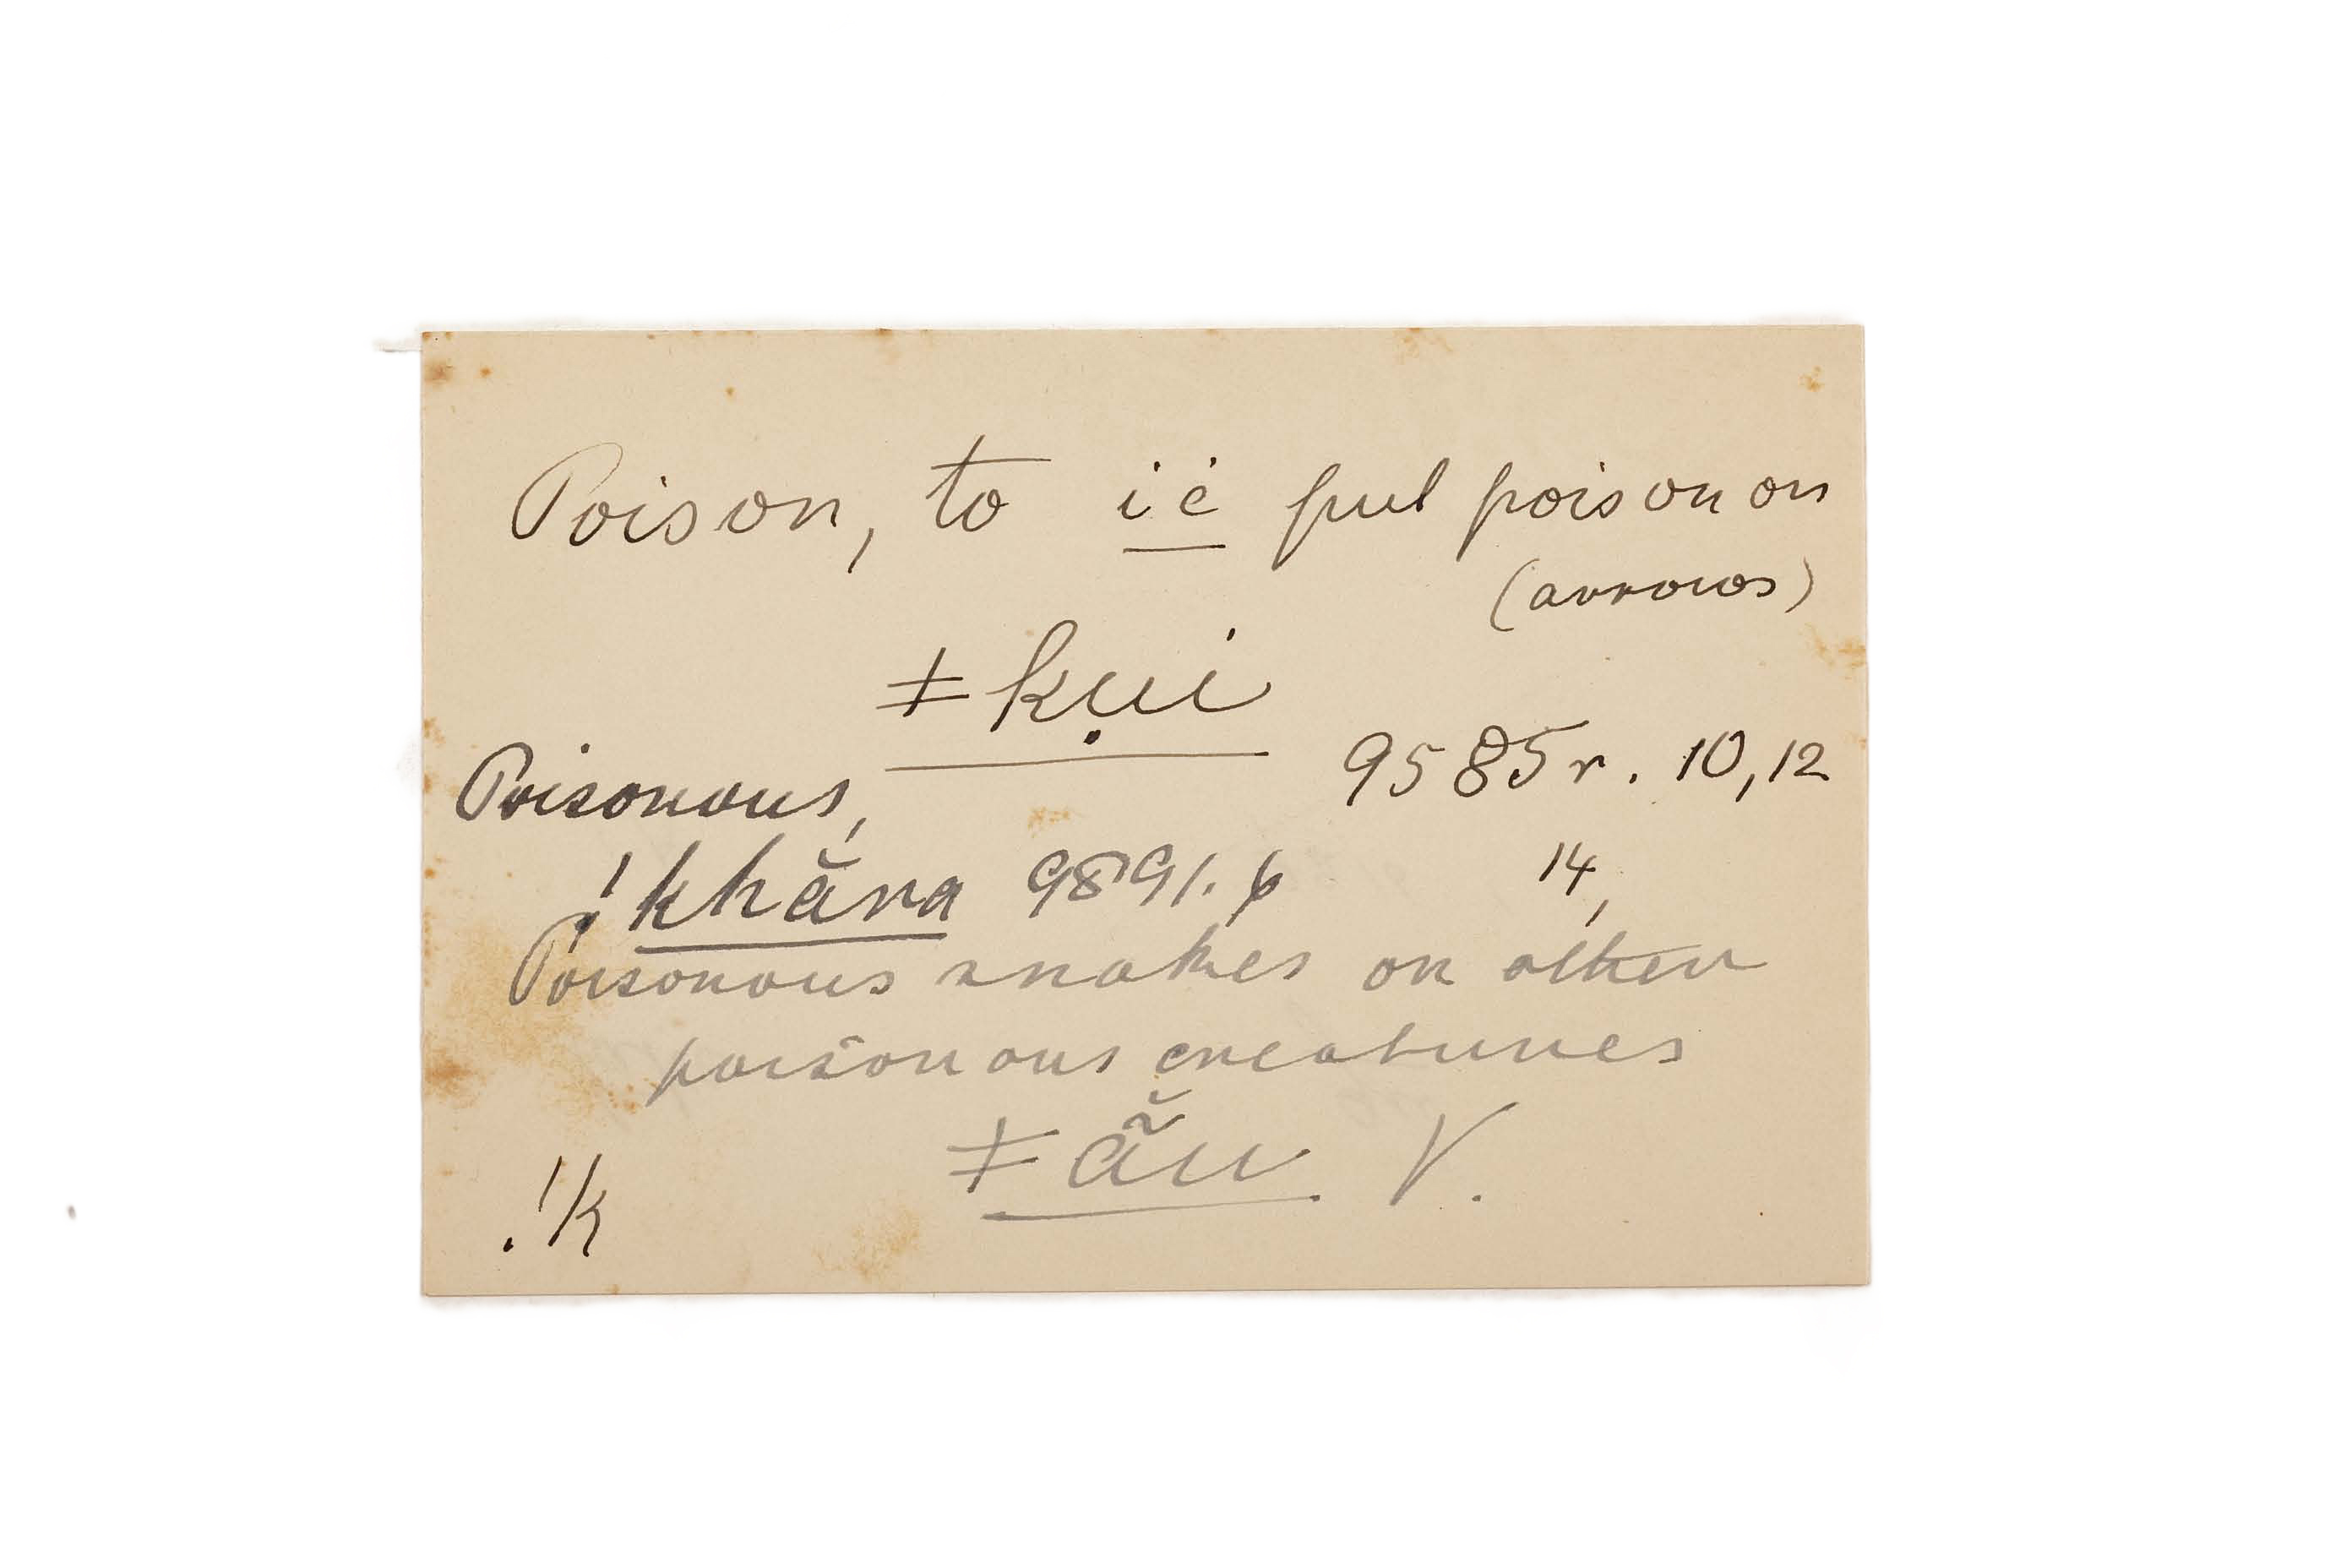 Poison, to i.e. put poison on
(arrows)
ǂkụi
9585 r. 10, 12
Poisonous,
!khăra 9891. 6 14,
Poisonous snakes or other
poisonous creatures
ǂã̆u V.
!k